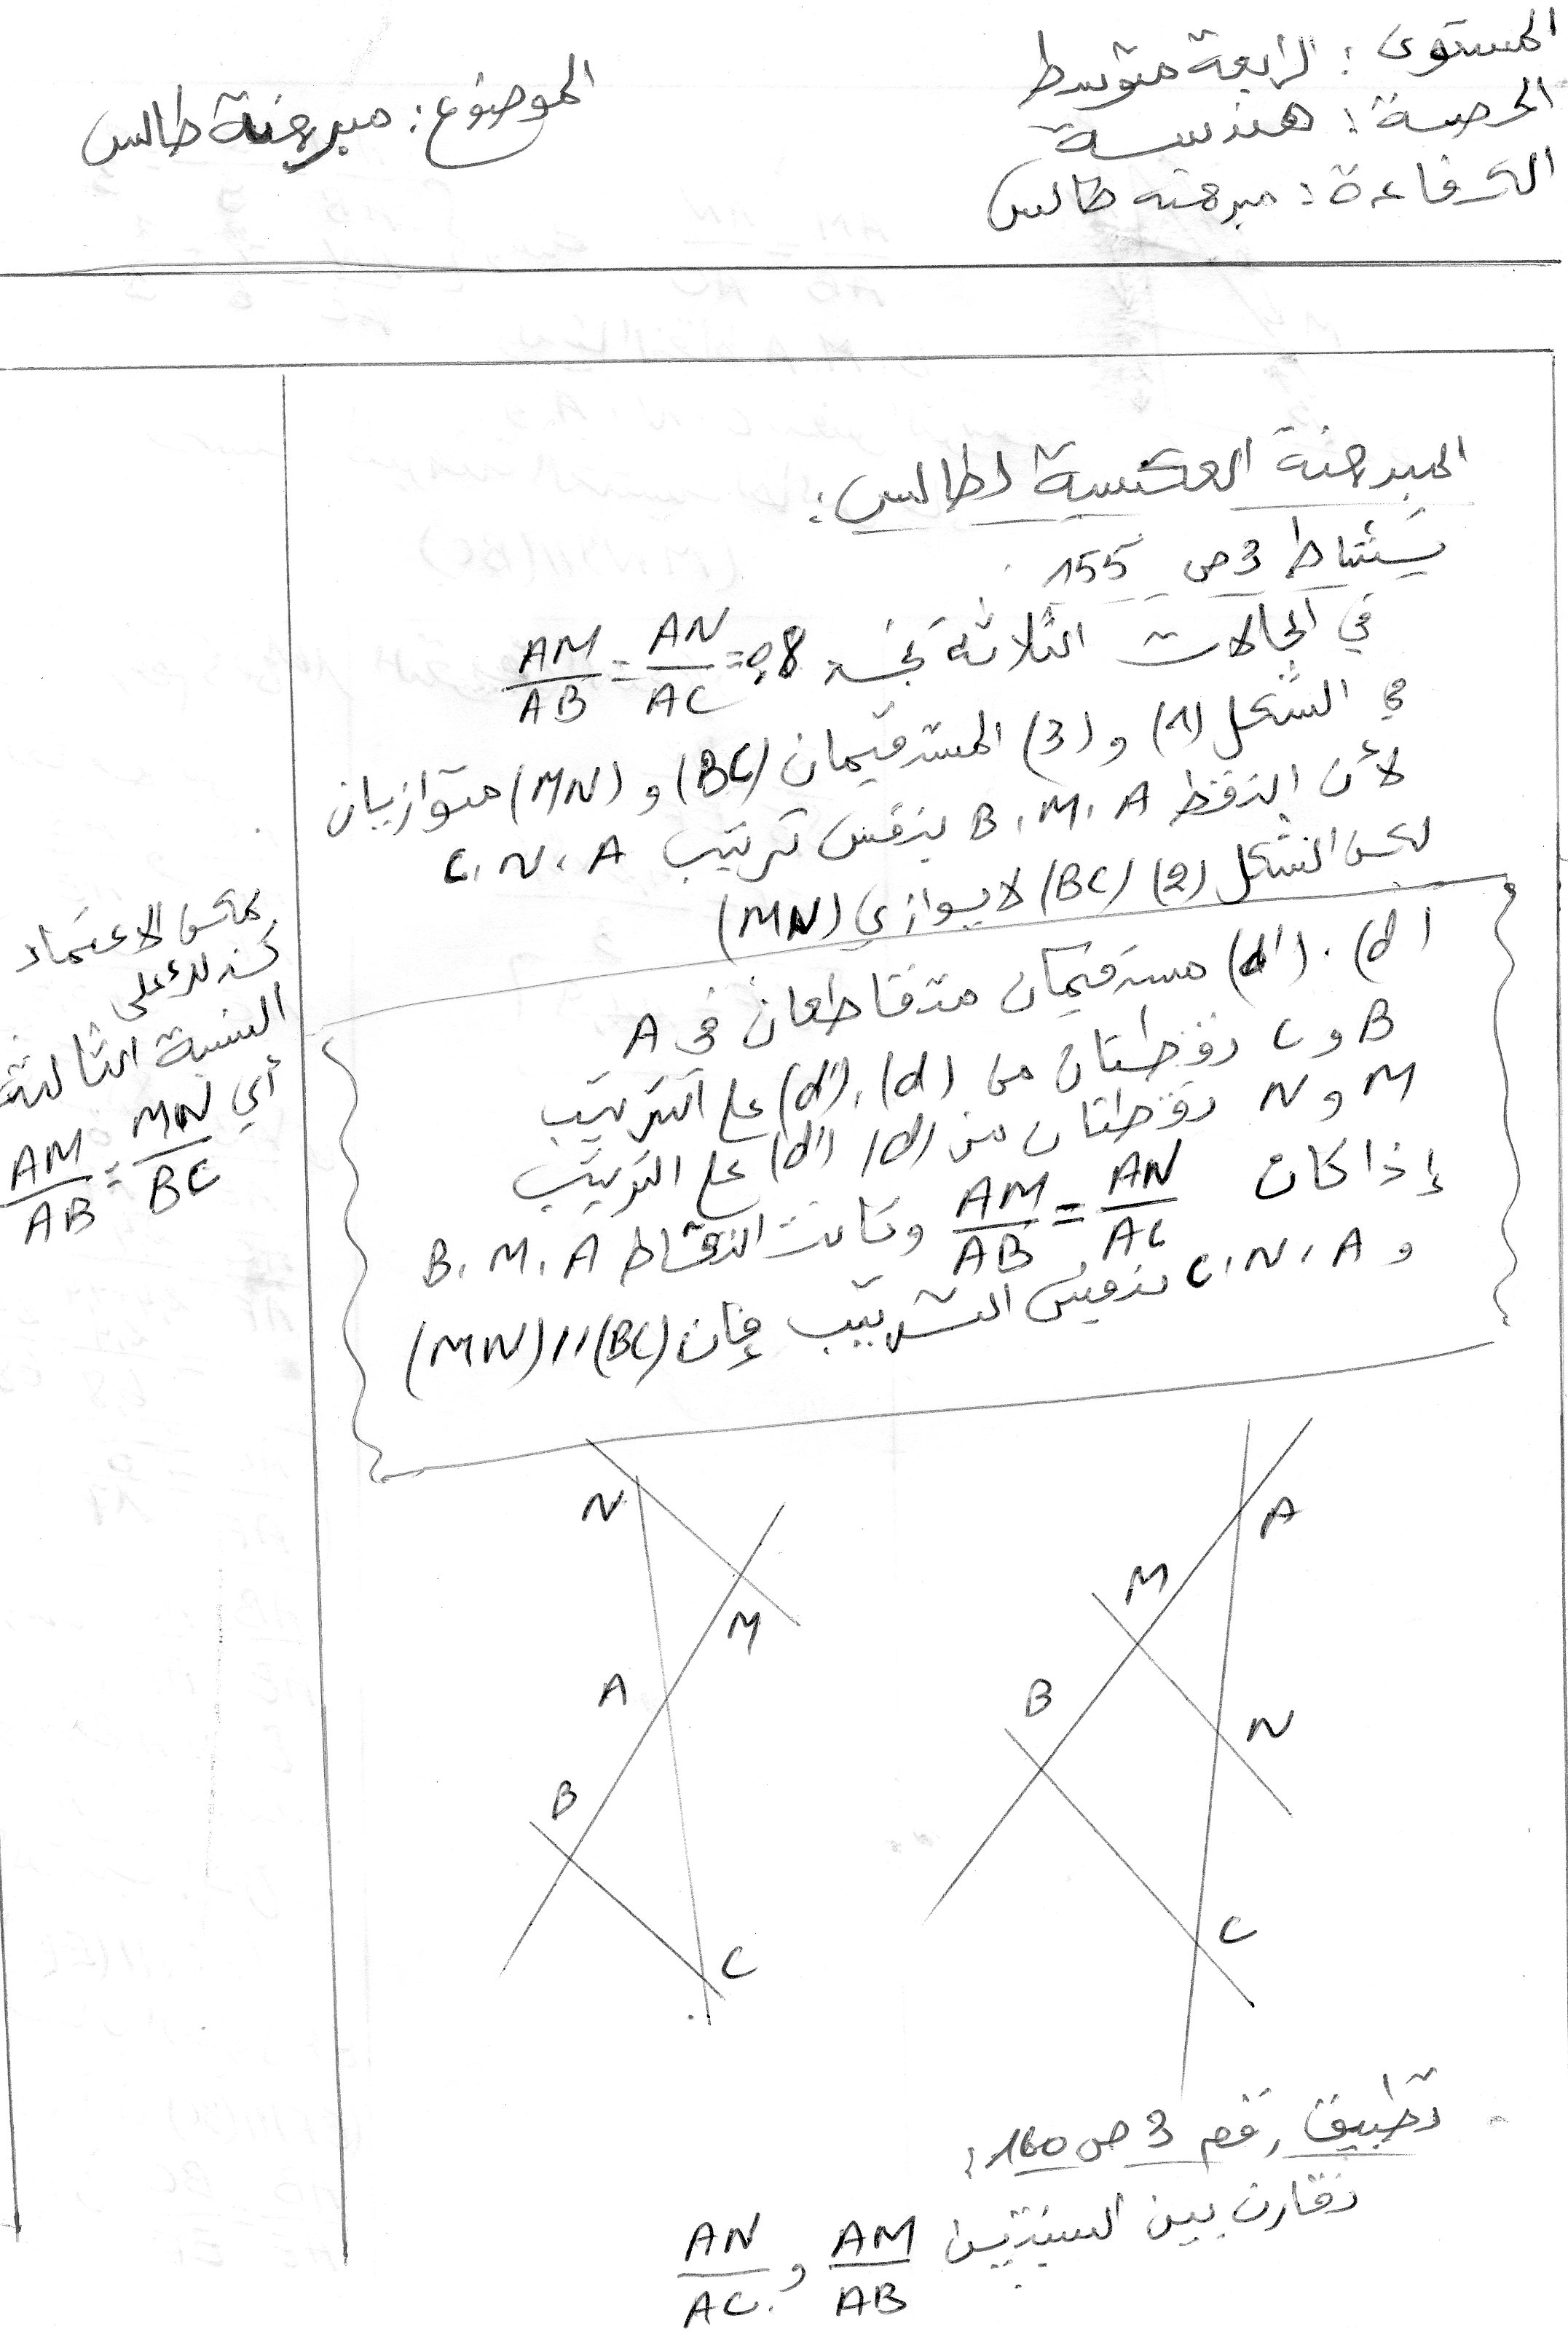 المستوى : الرابعة متوسط
الحصة : هندسة
الكفاءة : مبرهنة طالس
الموضوع : مبرهنة طالس
المبرهنة العكسية لطالس :
نشاط 3 ص 155
في الحالات الثلاثة نجد AM/AB = AN/AC = 0,8
في الشكل (1) و (3) المستقيمان (BC) و (MN) متوازيان
لأن النقط B, M, A بنفس ترتيب C, N, A
لكن الشكل (2) (BC) لا يوازي (MN)
(d) , (d') مستقيمان متقاطعان في A
B و C نقطتان من (d) , (d') على الترتيب
M و N نقطتان من (d) (d') على الترتيب
إذا كان AM/AB = AN/AC وكانت النقاط B, M, A
و C, N, A بنفس الترتيب فإن (MN) // (BC)
يمكن الاعتماد
كذلك على
النسبة الثالثة
أي AM/AB = MN/BC
N
M
A
B
C
A
M
B
N
C
تطبيق رقم 3 ص 160 :
نقارن بين النسبتين AM/AB و AN/AC